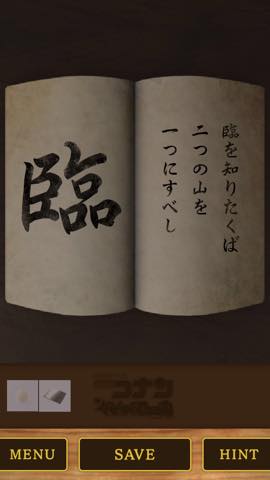 臨
臨を知りたくば
二つの山を
一つにすべし
コナン
MENU
SAVE
HINT